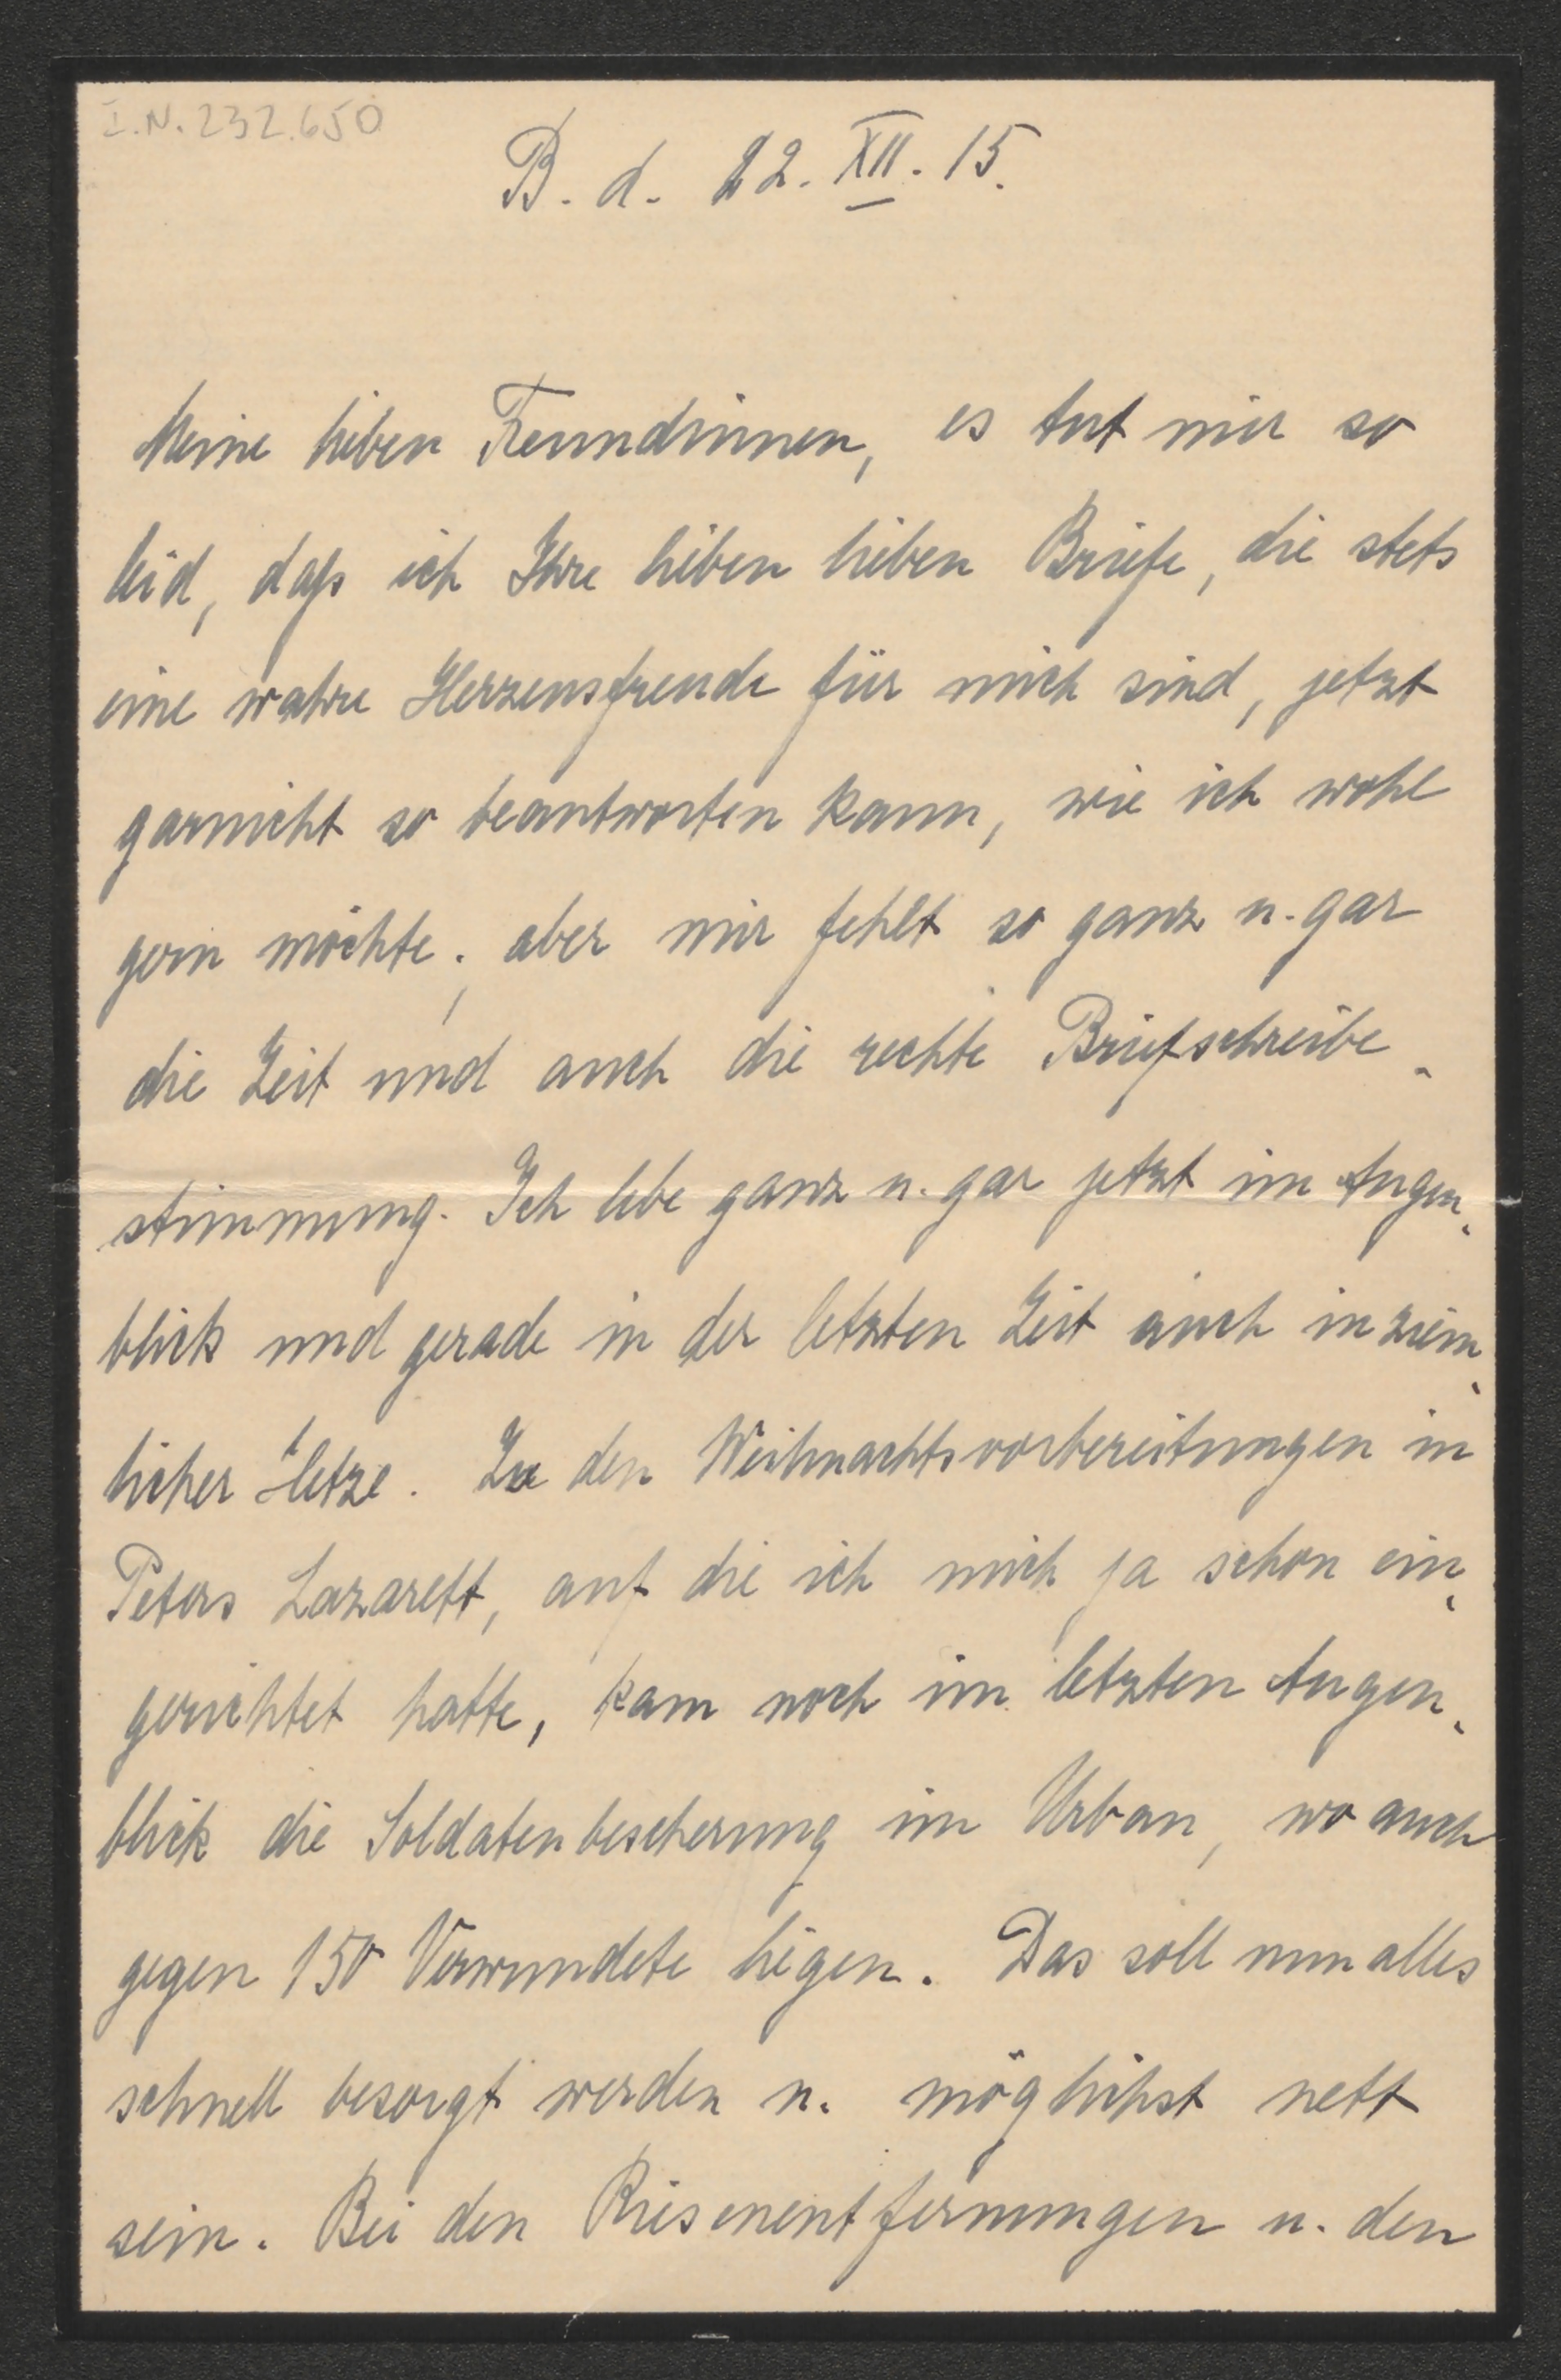 I.N. 232.650
B. d. 22. XII. 15.
Meine lieben Freundinnen, es tut mir so
leid, daß ich Ihre lieben lieben Briefe, die stets
eine wahre Herzensfreude für mich sind, jetzt
garnicht so beantworten kann, wie ich wohl
gern möchte; aber mir fehlt so ganz u. gar
die Zeit und auch die rechte Briefschreibe-
stimmung. Ich lebe ganz u. gar jetzt im Augen-
blick und gerade in der letzten Zeit auch in ziem-
licher Hetze. Zu den Weihnachtsvorbereitungen in
Peters Lazarett, auf die ich mich ja schon ein-
gerichtet hatte, kam noch im letzten Augen-
blick die Soldatenbescherung im Urban, wo auch
gegen 150 Verwundete liegen. Das soll nun alles
schnell besorgt werden u. möglichst nett
sein. Bei den Riesenentfernungen u. den